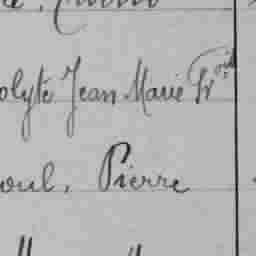 olyte Jean Marie Fr.ois
oul, Pierre